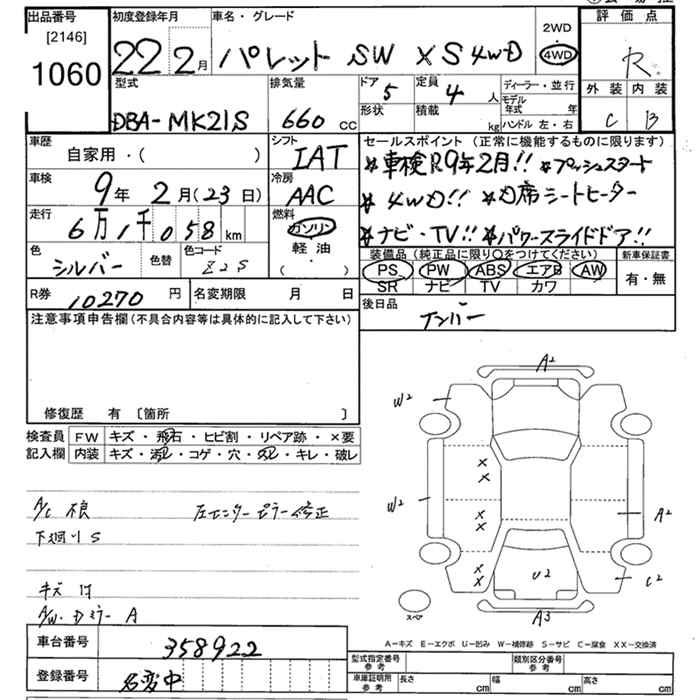 出品番号
[2146]
1060
初度登録年月
22年2月
車名・グレード
パレット SW XS 4WD
2WD
・
4WD
評価点
R
外装 内装
C B
型式
DBA-MK21S
排気量
660 cc
ドア 5
定員 4 人
形状
積載 kg
ディーラー・並行
モデル年式 年
ハンドル 左・右
車歴
自家用・( )
シフト
IAT
車検
9年 2月(23日)
冷房
AAC
走行
6万1千058km
燃料
ガソリン
軽油
・
( )
色
シルバー
色替
色コード
Z2S
R券 10270 円
名変期限 月 日
セールスポイント (正常に機能するものに限ります)
*車検R9年2月!! *プッシュスタート
*4WD!! *D席シートヒーター
*ナビ・TV!! *パワースライドドア!!
装備品(純正品に限り○をつけてください)
PS PW ABS エアB AW
SR ナビ TV カワ
新車保証書
有・無
後日品
ナンバー
注意事項申告欄(不具合内容等は具体的に記入して下さい)
修復歴 有 〔箇所 〕
検査員
記入欄
FW キズ・飛石・ヒビ割・リペア跡・×要
内装 キズ・汚レ・コゲ・穴・スレ・キレ・破レ
A/C 不良 左センターピラー修正
下廻りS
キズ 凹
A/W・Dミラー A
A2
W2
W2
X
X
X
X
X
X
A2
U2
C2
A3
スペア
A−キズ E−エクボ U−凹み W−補修跡 S−サビ C−腐食 XX−交換済
車台番号 358922
登録番号 名変中
型式指定番号
参考
類別区分番号
参考
車庫証明用
参考
長さ cm
幅 cm
高さ cm